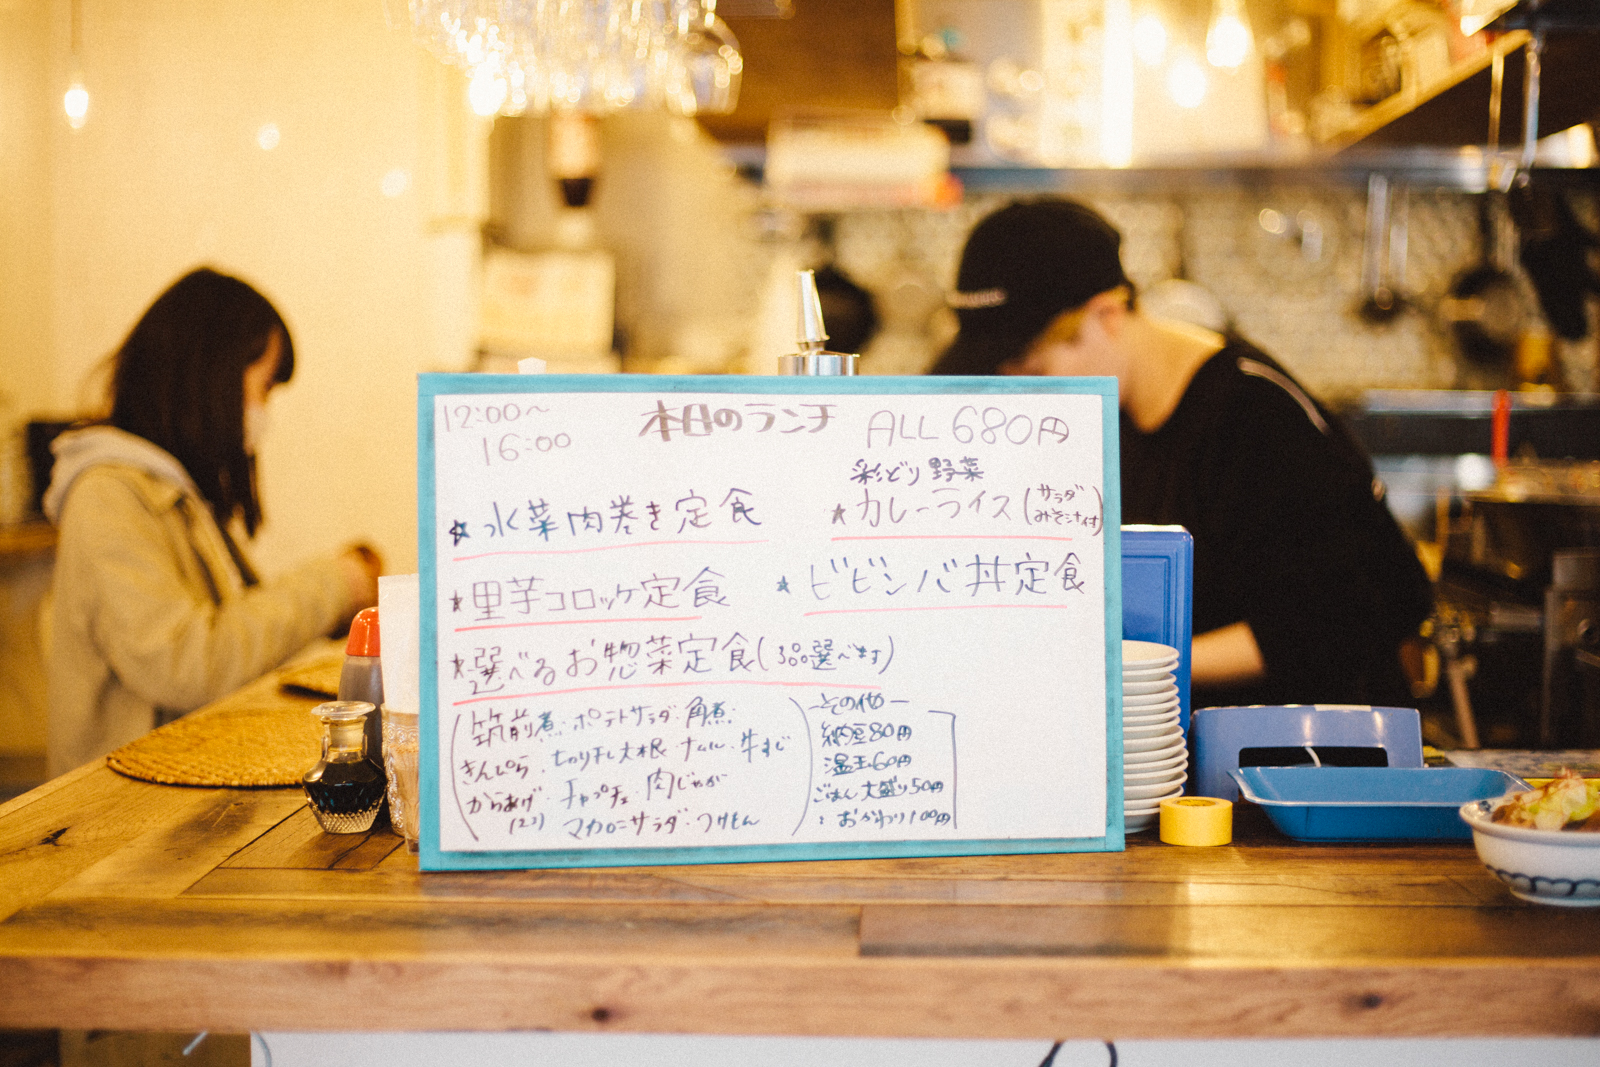 12:00~
16:00
本日のランチ
ALL 680円
★水菜肉巻き定食
★里芋コロッケ定食
★選べるお惣菜定食(3品選べます)
(筑前煮・ポテトサラダ・角煮・
きんぴら・切り干し大根・ナムル・牛すじ
からあげ・チャプチェ・肉じゃが
(2コ) マカロニサラダ・つけもん)
彩どり野菜
★カレーライス(サラダ
みそ汁付)
★ビビンバ丼定食
-その他-
納豆80円
温玉60円
ごはん大盛り50円
: おかわり100円